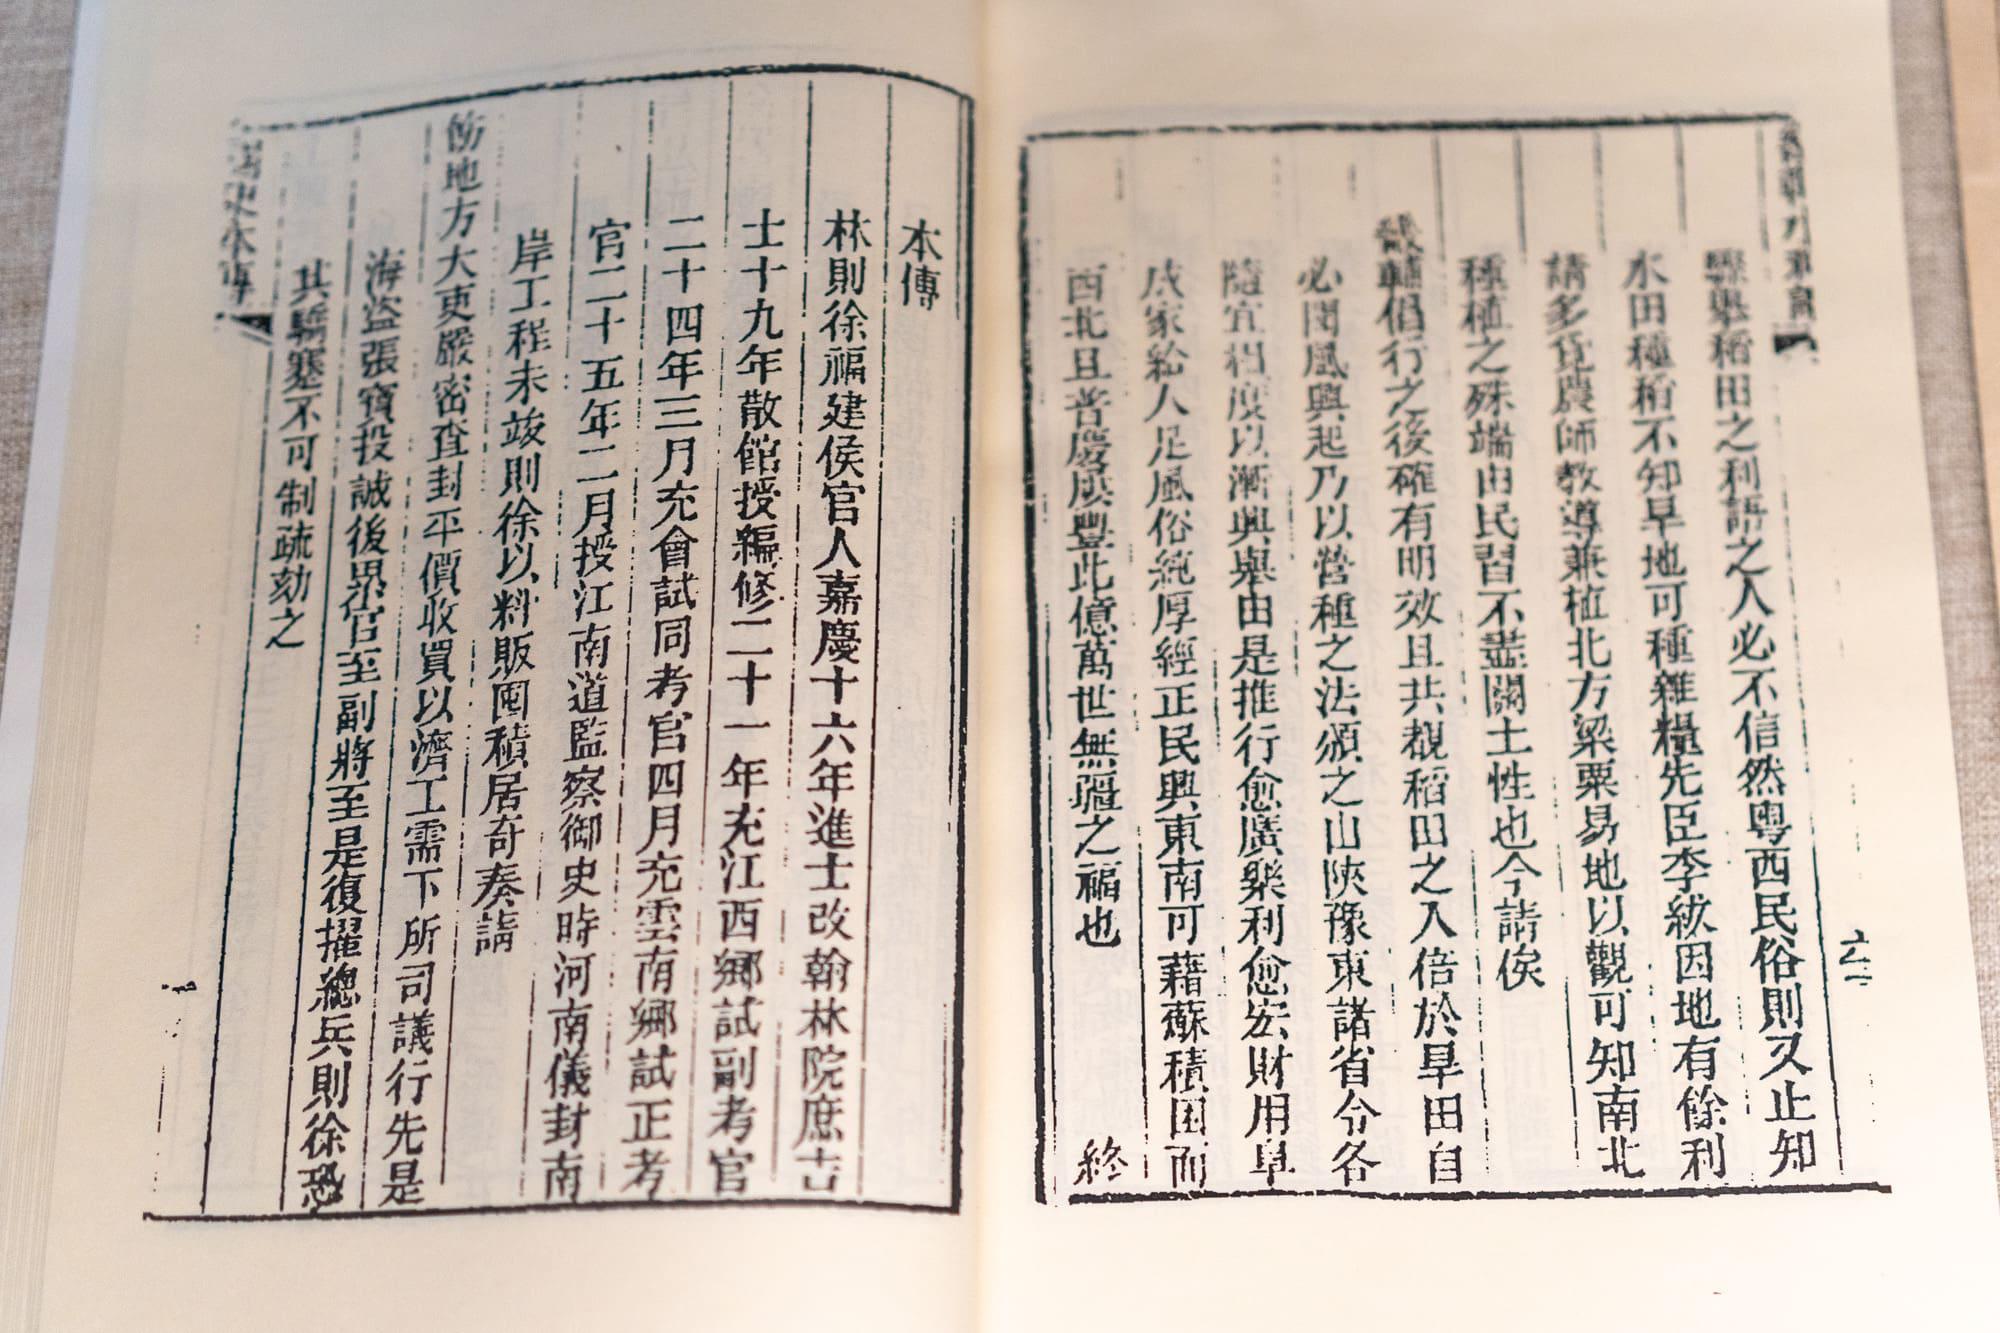 驟舉稻田之利語之人必不信然粵西民俗則又止知
水田種稻不知旱地可種雜糧先臣李紱因地有餘利
請多覓農師教導兼植北方粱粟易地以觀可知南北
種植之殊端由民習不盡關土性也今請俟
畿輔倡行之後確有明效且共覩稻田之入倍於旱田自
必聞風興起乃以營種之法頒之山陝豫東諸省令各
隨宜相度以漸興舉由是推行愈廣樂利愈宏財用阜
成家給人足風俗純厚經正民興東南可藉蘇積困而
西北且普慶屢豐此億萬世無疆之福也
終
六二
本傳
林則徐福建侯官人嘉慶十六年進士改翰林院庶吉
士十九年散館授編修二十一年充江西鄉試副考官
二十四年三月充會試同考官四月充雲南鄉試正考
官二十五年二月授江南道監察御史時河南儀封南
岸工程未竣則徐以料販囤積居奇奏請
飭地方大吏嚴密查封平價收買以濟工需下所司議行先是
海盜張寶投誠後累官至副將至是復擢總兵則徐恐
其驕蹇不可制疏劾之
國史本傳